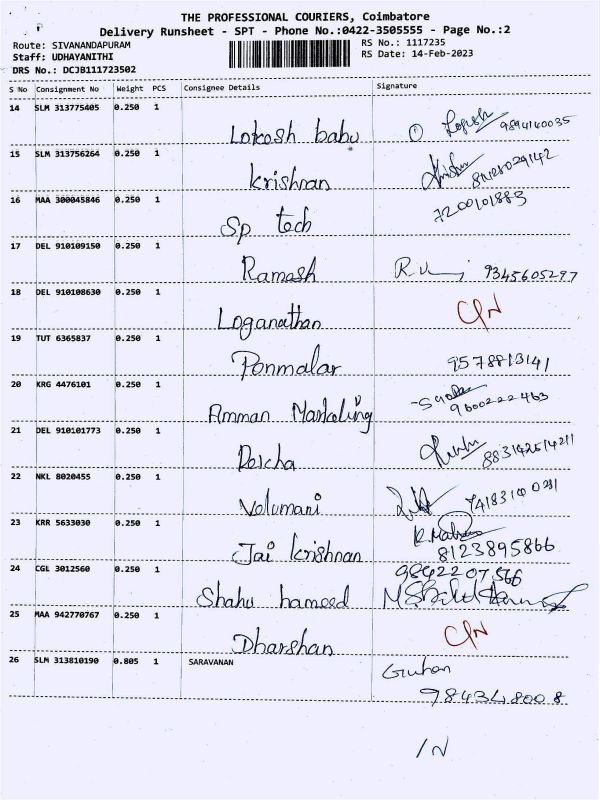 THE PROFESSIONAL COURIERS, Coimbatore
Delivery Runsheet - SPT - Phone No.:0422-3505555 - Page No.:2
Route: SIVANANDAPURAM
RS No.: 1117235
Staff: UDHAYANITHI
RS Date: 14-Feb-2023
DRS No.: DCJB111723502
S No Consignment No Weight PCS Consignee Details Signature
14 SLM 313775405 0.250 1
Lokosh babu 9894140035
15 SLM 313756264 0.250 1
krishnan
16 MAA 300045846 0.250 1
Sp tech 7200101883
17 DEL 910109150 0.250 1
Ramash 9345605297
18 DEL 910108630 0.250 1
Loganathan C/N
19 TUT 6365837 0.250 1
Ponmalar 9578813141
20 KRG 4476101 0.250 1
Amman Marketing 9600222463
21 DEL 910101773 0.250 1
22 NKL 8020455 0.250 1
Volumani
23 KRR 5633030 0.250 1
Jai krishnan 8123895866
24 CGL 3012560 0.250 1 9842207566
Shahu hameed
25 MAA 942770767 0.250 1
Dharshan C/N
26 SLM 313810190 0.805 1 SARAVANAN
Guhan
984348008
/N